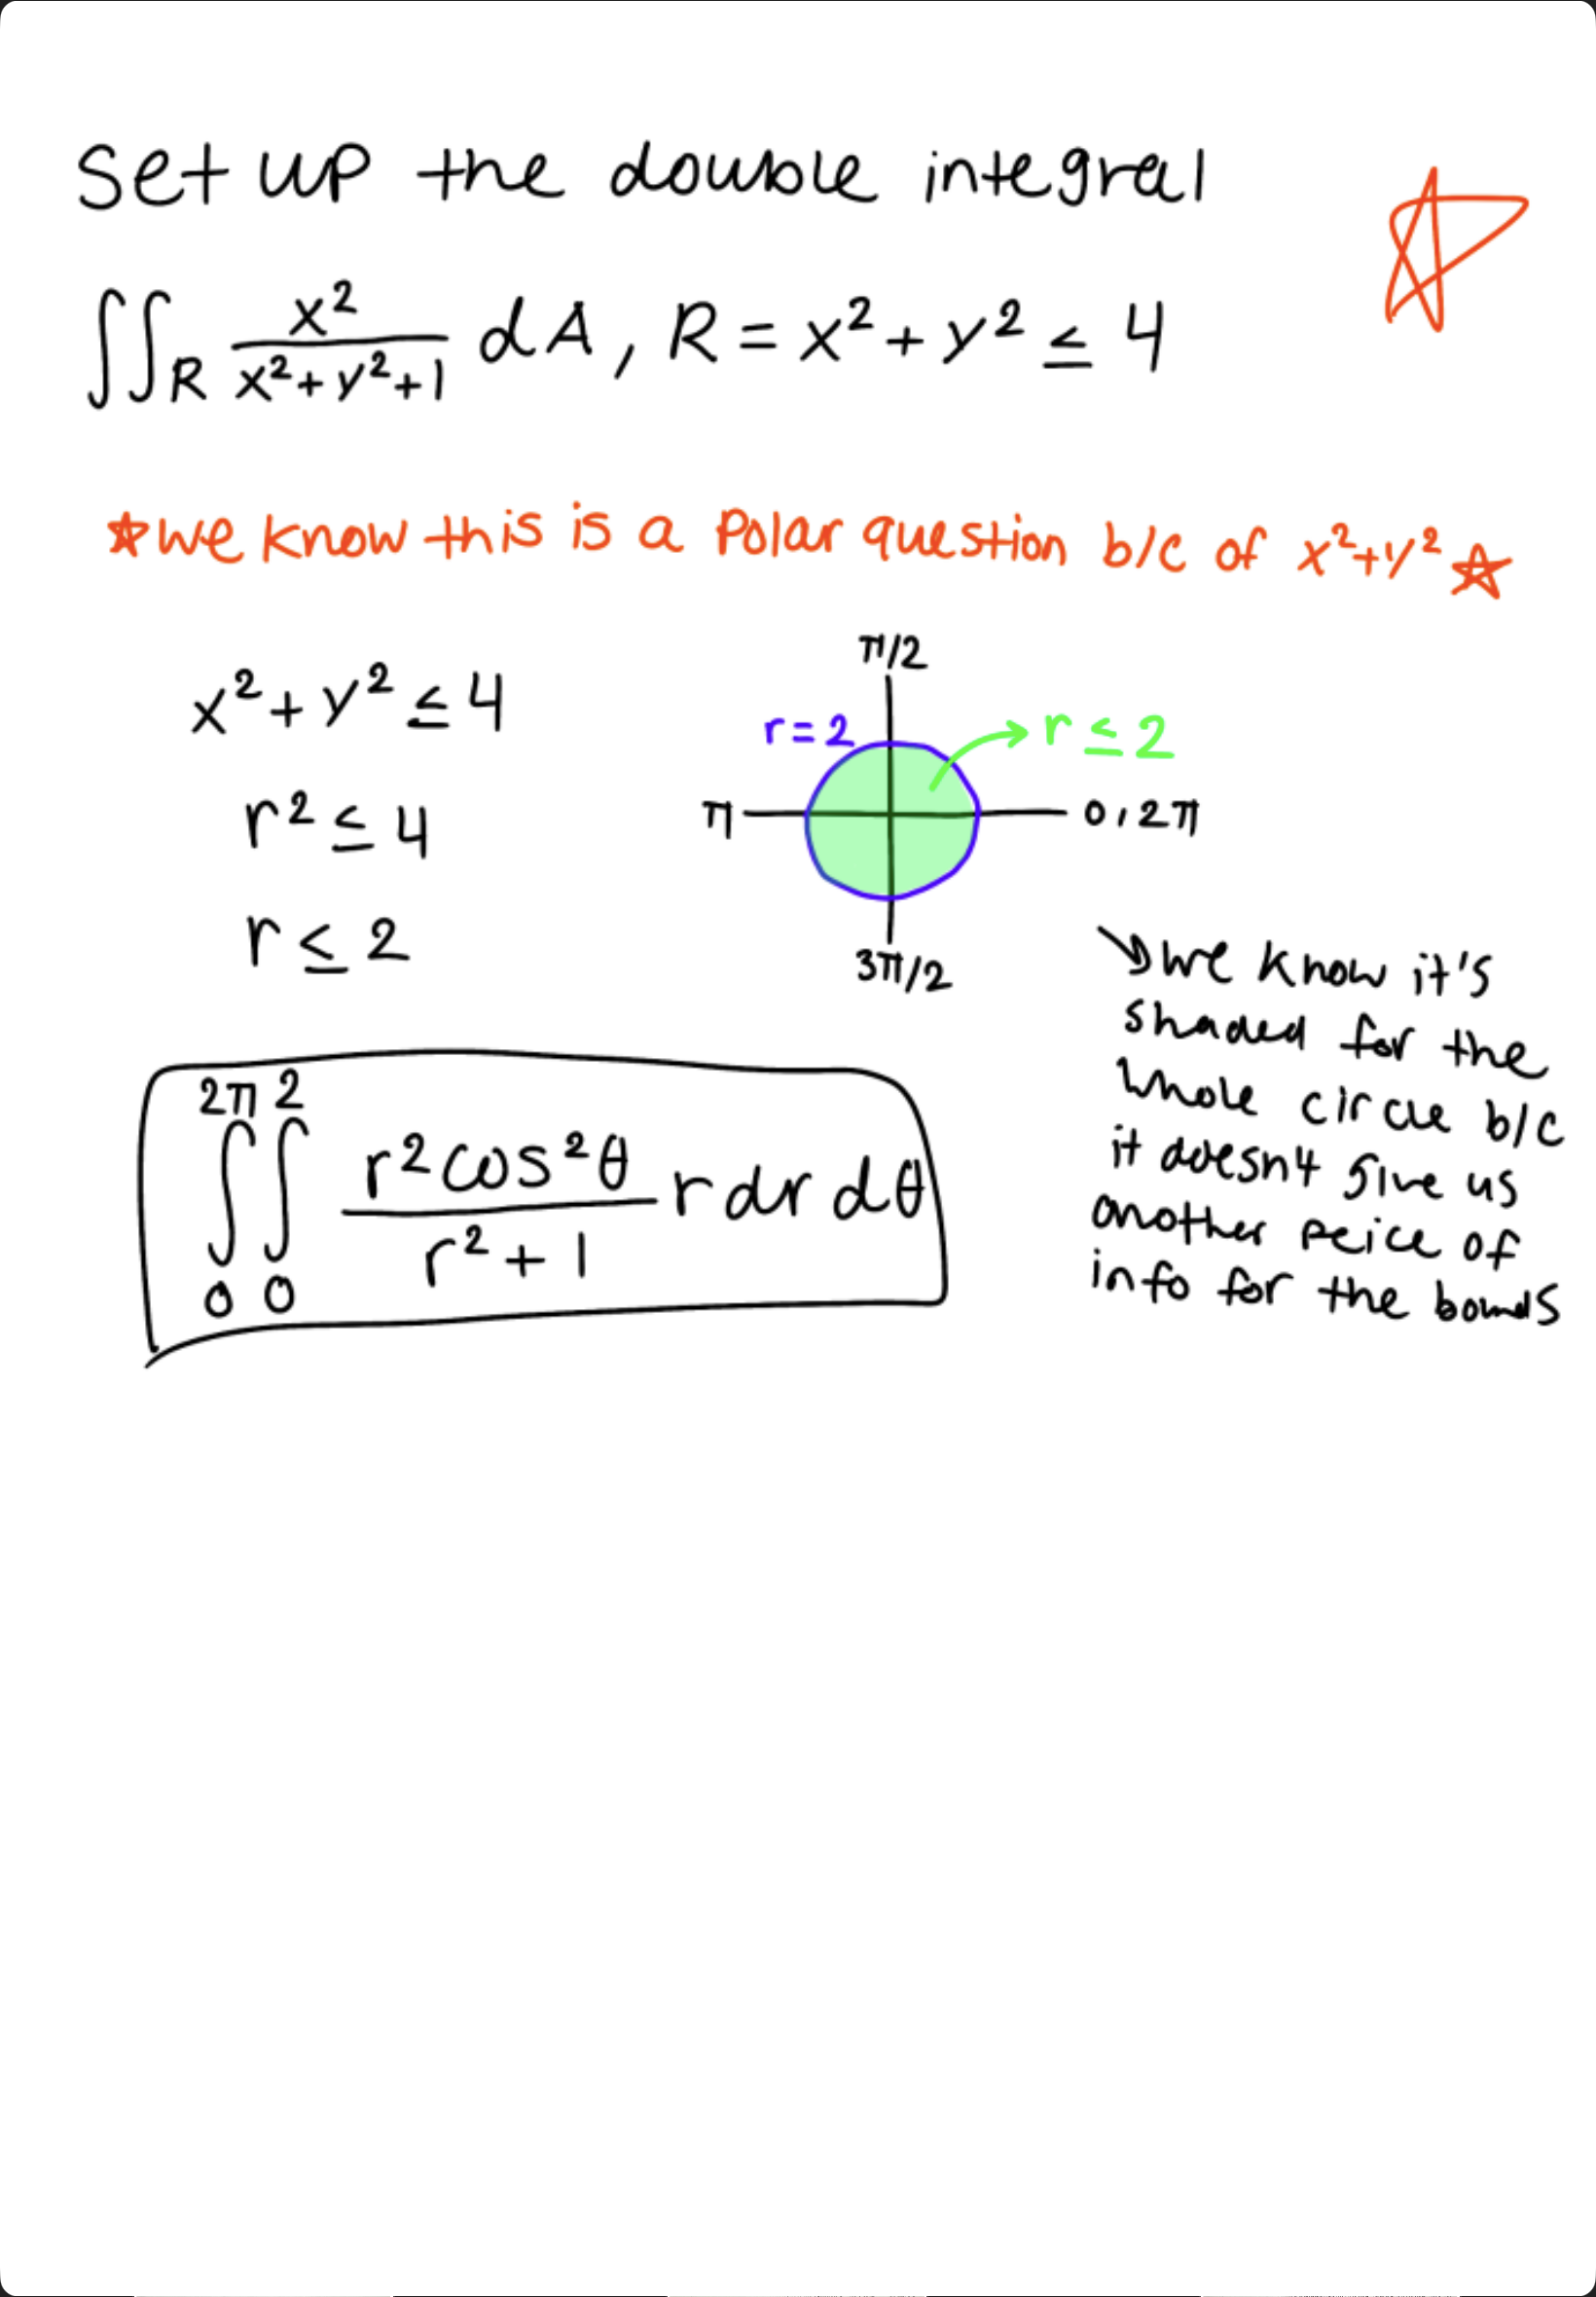 Set up the double integral
∫∫_R x²/(x²+y²+1) dA, R = x²+y² ≤ 4
☆we know this is a polar question b/c of x²+y²☆
x²+y² ≤ 4
r² ≤ 4
r ≤ 2
π/2
r=2
r ≤ 2
π
0,2π
3π/2
↘we know it's
shaded for the
whole circle b/c
it doesn't give us
another peice of
info for the bounds
∫_0^2π ∫_0^2 (r²cos²θ)/(r²+1) r dr dθ